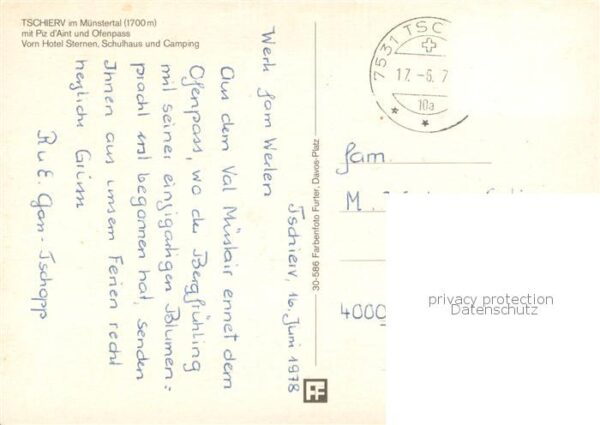 TSCHIERV im Münstertal (1700 m)
mit Piz d'Aint und Ofenpass
Vorn Hotel Sternen, Schulhaus und Camping
Tschierv, 16. Juni 1978
Aus dem Val Müstair ennet dem
Ofenpass, wo der Bergfrühling
mit seiner einzigartigen Blumen=
pracht erst begonnen hat, senden
Ihnen aus unsern Ferien recht
herzliche Grüsse
R u E. - Tschopp
30-586 Farbenfoto Furter, Davos-Platz
7531 TSC
17. -6. 7
10a
Fam.
M.
4000
privacy protection
Datenschutz